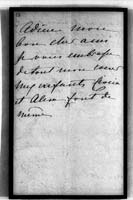 Adieu mon
bon cher ami
je vous embrasse
de tout mon coeur
mes enfants,
et Alex font de
même